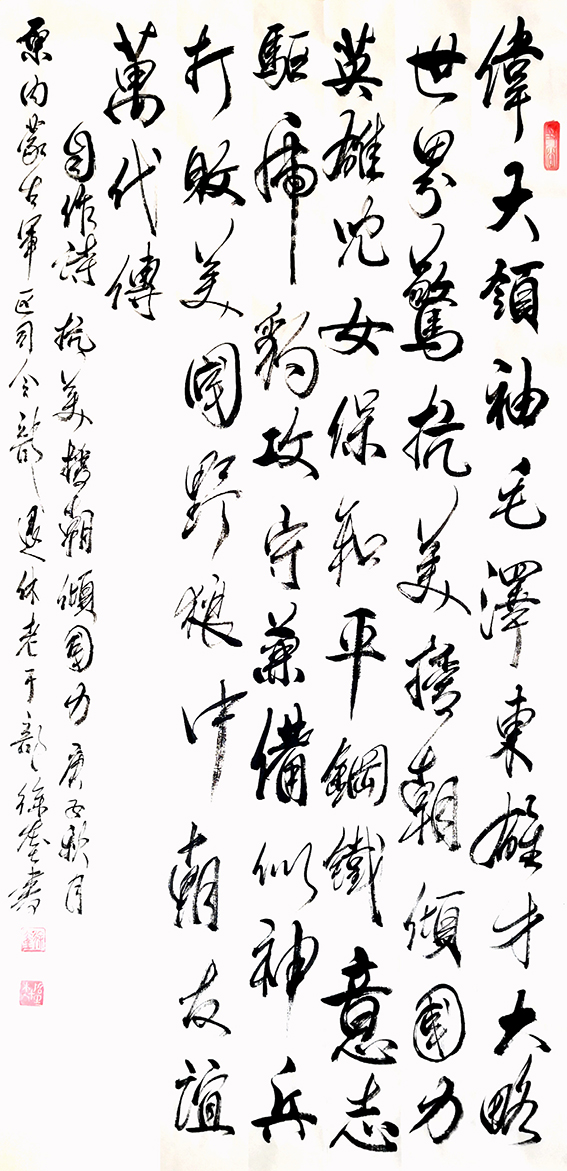 偉大領袖毛澤東雄才大略
世界驚抗美援朝傾国力
英雄児女保和平鋼鐵意志
駆虎豹攻守兼備似神兵
打敗美国野狼中朝友誼
萬代傳
自作詩抗美援朝傾国力庚子秋月
原内蒙古軍区司令部退休老干部徐奎書